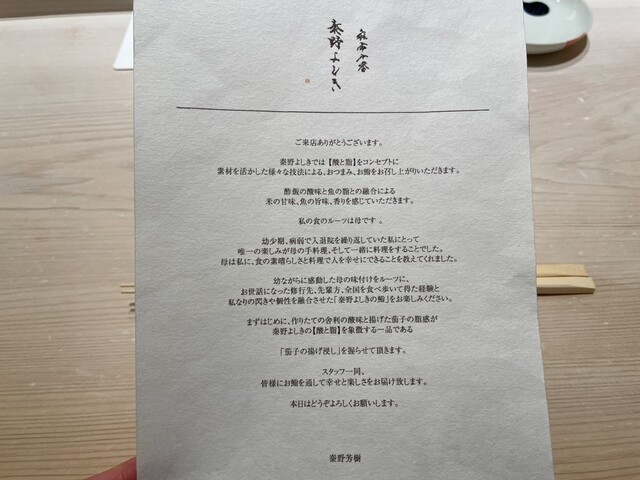 麻布十番
秦野よしき
ご来店ありがとうございます。
秦野よしきでは【酸と脂】をコンセプトに
素材を活かした様々な技法による、おつまみ、お鮨をお召し上がりいただきます。
酢飯の酸味と魚の脂との融合による
米の甘味、魚の旨味、香りを感じていただきます。
私の食のルーツは母です。
幼少期、病弱で入退院を繰り返していた私にとって
唯一の楽しみが母の手料理、そして一緒に料理をすることでした。
母は私に、食の素晴らしさと料理で人を幸せにできることを教えてくれました。
幼ながらに感動した母の味付けをルーツに、
お世話になった修行先、先輩方、全国を食べ歩いて得た経験と
私なりの閃きや個性を融合させた「秦野よしきの鮨」をお楽しみください。
まずはじめに、作りたての舎利の酸味と揚げた茄子の脂感が
秦野よしきの【酸と脂】を象徴する一品である
「茄子の揚げ浸し」を握らせて頂きます。
スタッフ一同、
皆様にお鮨を通して幸せと楽しさをお届け致します。
本日はどうぞよろしくお願いします。
秦野芳樹